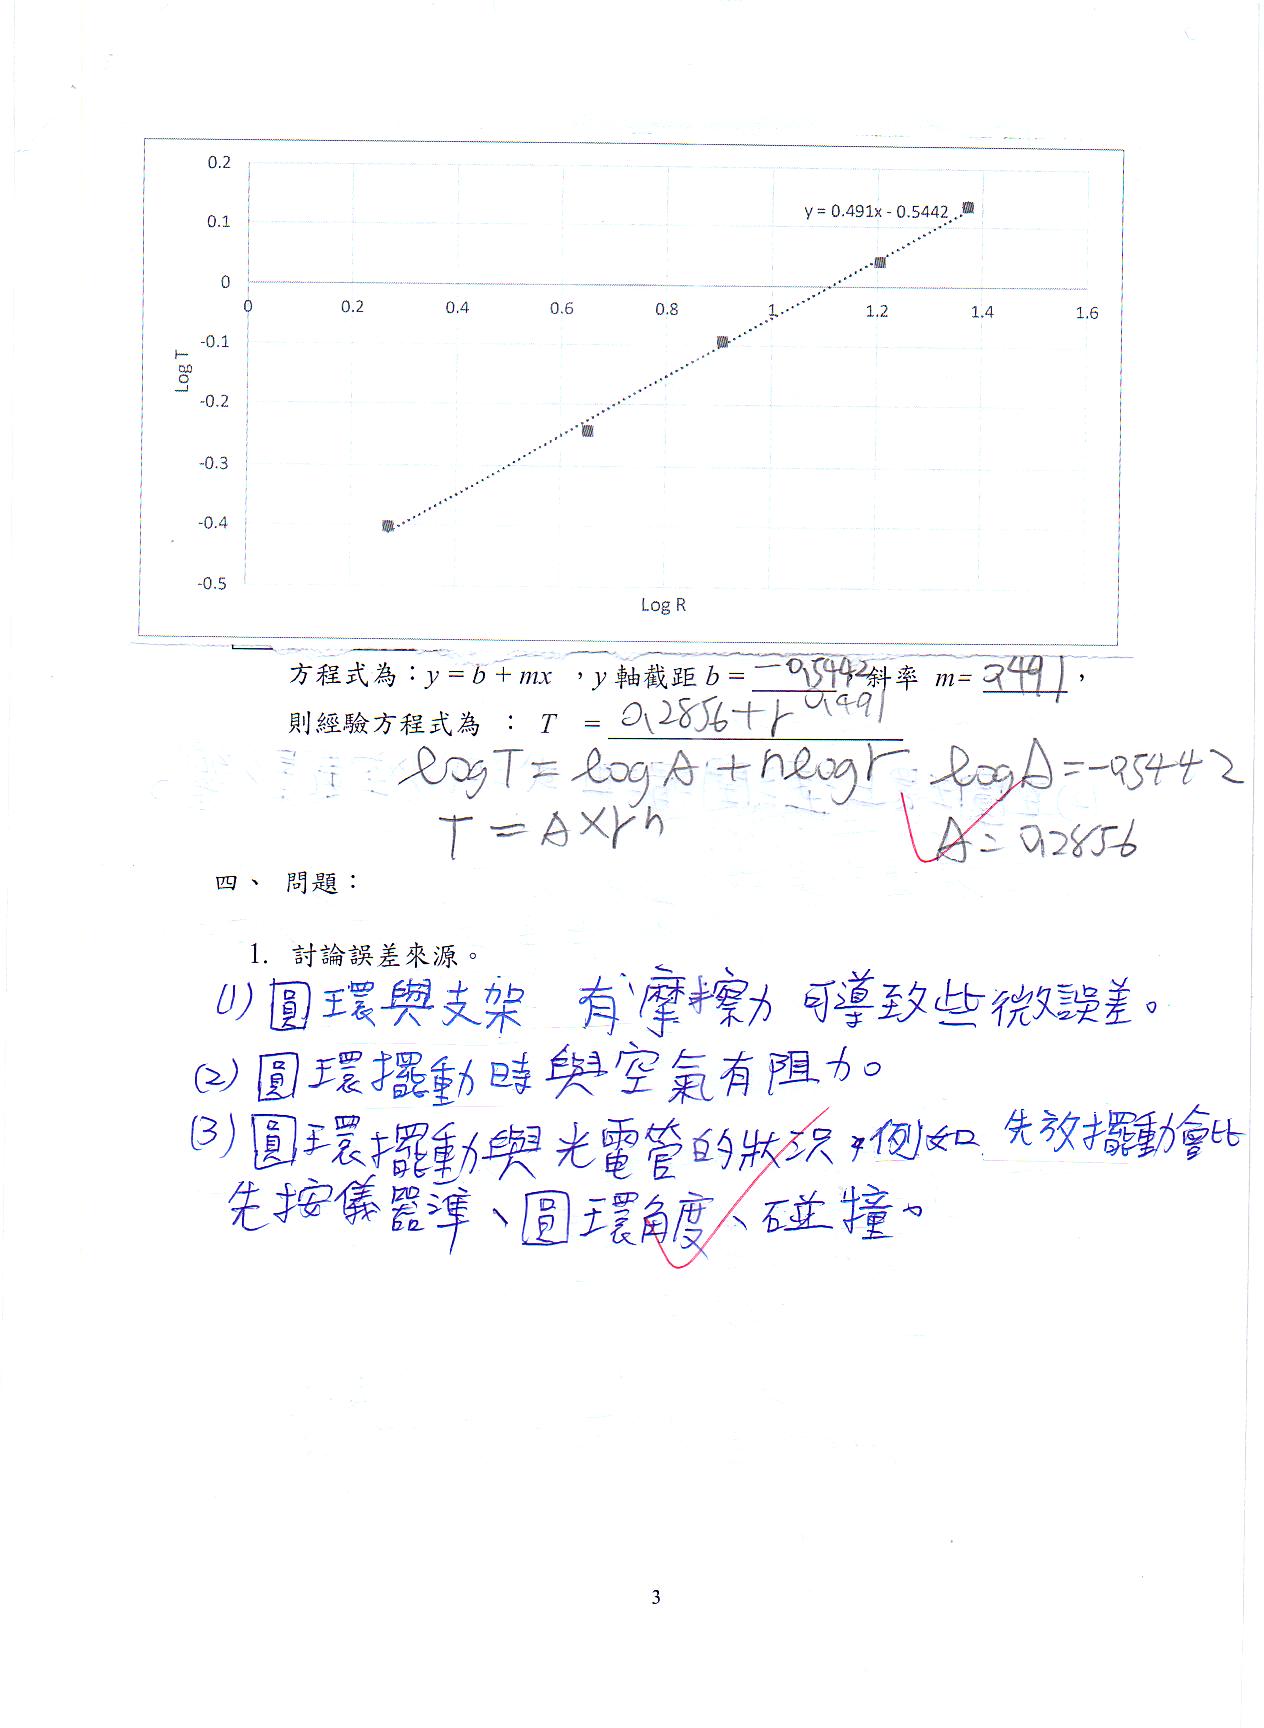 0.2
0.1
0
-0.1
-0.2
-0.3
-0.4
-0.5
0 0.2 0.4 0.6 0.8 1 1.2 1.4 1.6
y = 0.491x - 0.5442
Log T
Log R
方程式為：y = b + mx ，y 軸截距 b = -0.5442，斜率 m= 0.491，
則經驗方程式為 ： T = 0.2856+r^0.491
logT = logA + nlogr logA=-0.5442
T = A×r^n A=0.2856
四、 問題：
1. 討論誤差來源。
(1) 圓環與支架 有摩擦力 可導致些微誤差。
(2) 圓環擺動時與空氣有阻力。
(3) 圓環擺動與光電管的狀況，例如 先放擺動會比
先按儀器準、圓環角度、碰撞。
3